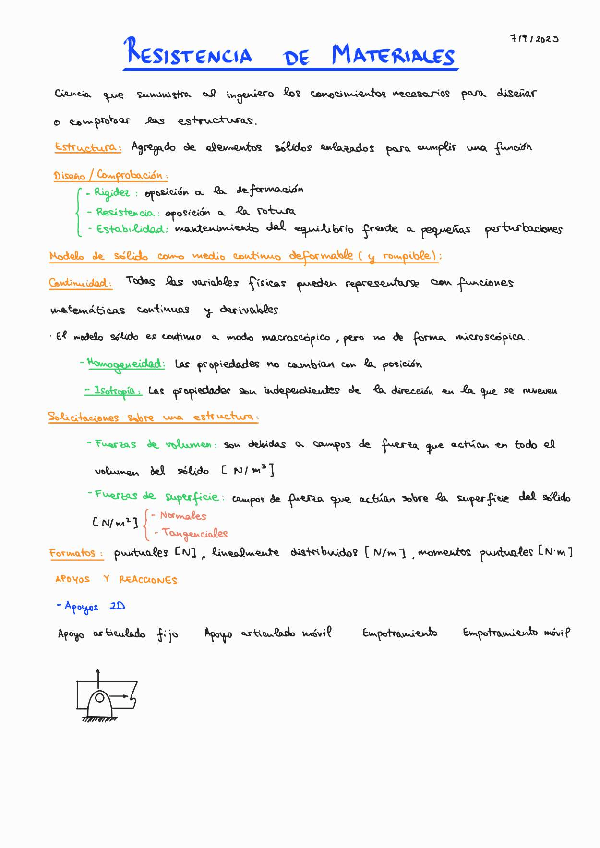 7/9/2023
RESISTENCIA DE MATERIALES
Ciencia que suministra al ingeniero los conocimientos necesarios para diseñar
o comprobar las estructuras.
Estructura: Agregado de elementos sólidos enlazados para cumplir una función
Diseño/Comprobación:
- Rigidez: oposición a la deformación
- Resistencia: oposición a la rotura
- Estabilidad: mantenimiento del equilibrio frente a pequeñas perturbaciones
Modelo de sólido como medio continuo deformable (y rompible):
Continuidad: Todas las variables físicas pueden representarse con funciones
matemáticas continuas y derivables
· El modelo sólido es continuo a modo macroscópico, pero no de forma microscópica.
- Homogeneidad: Las propiedades no cambian con la posición
- Isotropía: Las propiedades son independientes de la dirección en la que se mueven
Solicitaciones sobre una estructura:
- Fuerzas de volumen: son debidas a campos de fuerza que actúan en todo el
volumen del sólido [N/m³]
- Fuerzas de superficie: campos de fuerza que actúan sobre la superficie del sólido
[N/m²] - Normales
- Tangenciales
Formatos: puntuales [N], linealmente distribuidos [N/m], momentos puntuales [N·m]
APOYOS Y REACCIONES
- Apoyos 2D
Apoyo articulado fijo Apoyo articulado móvil Empotramiento Empotramiento móvil